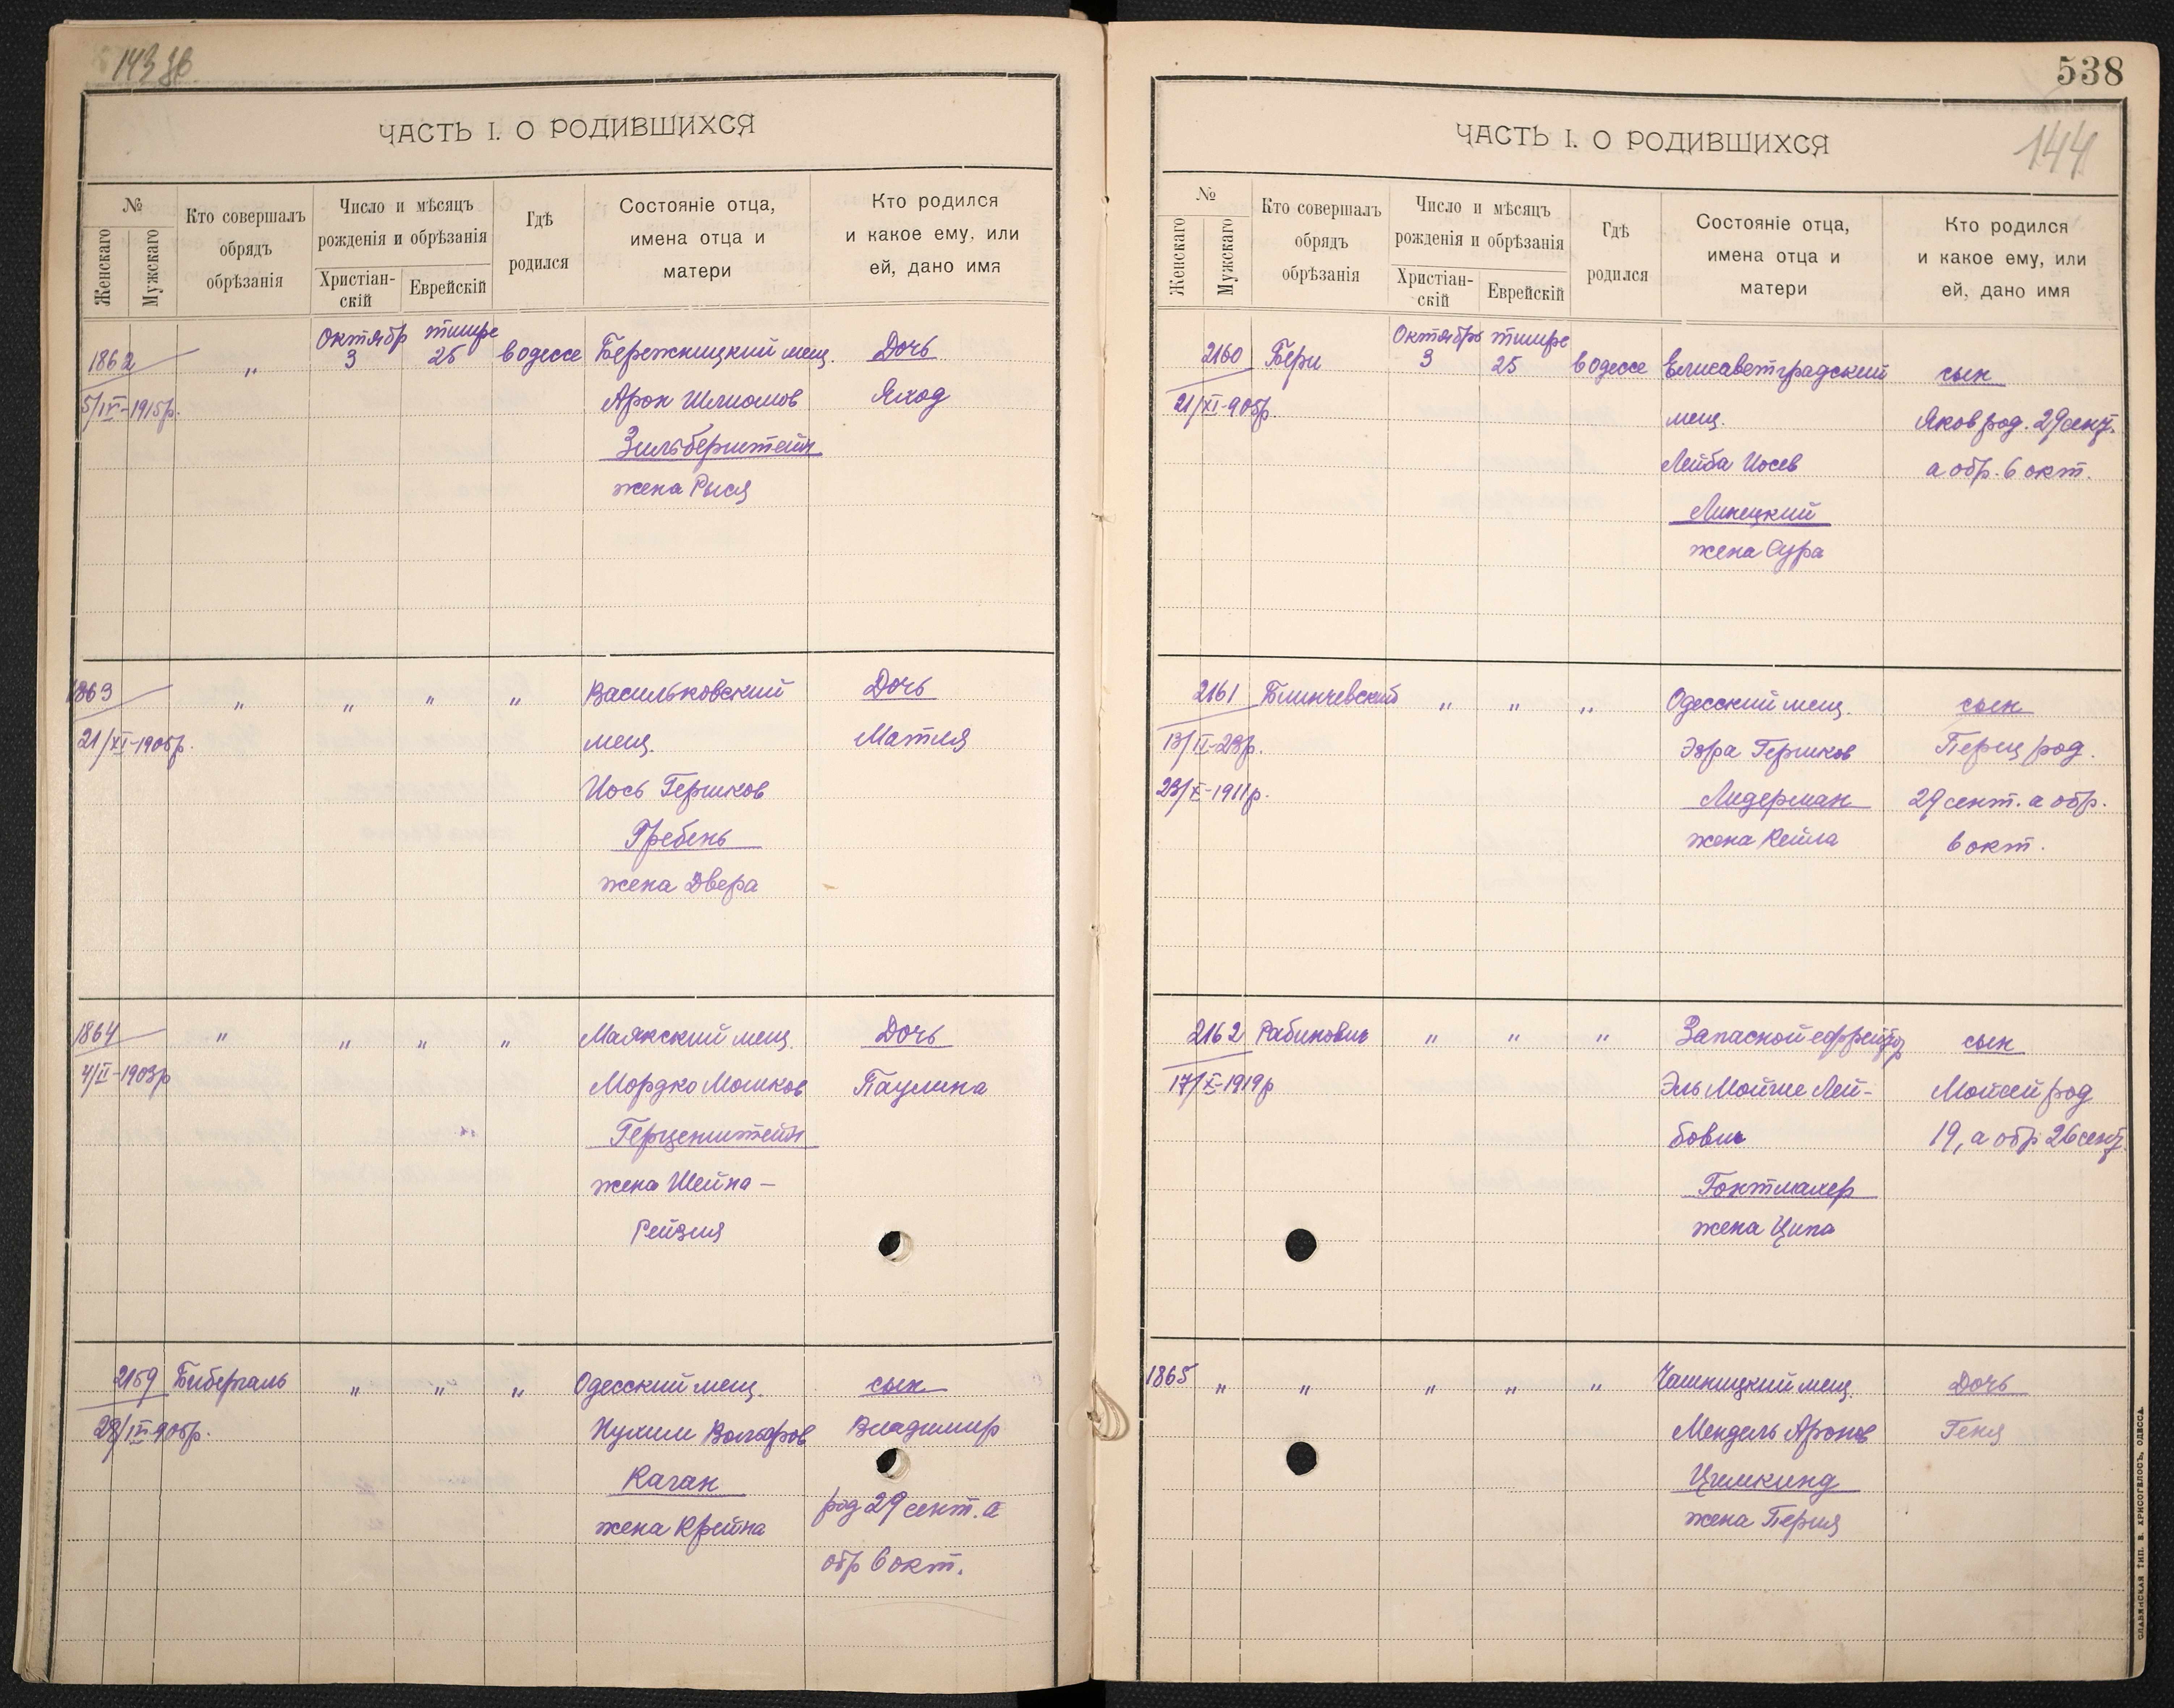 143 об
ЧАСТЬ I. О РОДИВШИХСЯ
№
Женскаго
Мужскаго
Кто совершалъ
обрядъ
обрѣзанія
Число и мѣсяцъ
рожденія и обрѣзанія
Христіан-
скій
Еврейскій
Гдѣ
родился
Состояніе отца,
имена отца и
матери
Кто родился
и какое ему, или
ей, дано имя
Октябр тишре
1862 " 3 25 в одессе Бережницкий мещ. Дочь
5/IV-1915р. Арон Шлиомов Яход
Зильберштейн
жена Рыся
1863 " " " " Васильковский Дочь
21/XI-1905р. мещ. Матля
Иось Гершков
Гребень
жена Двера
1864 " " " " Маякский мещ. Дочь
4/II-1903р Мордко Мошков Паулина
Герценштейн
жена Шейна-
Рейзля
2159 Бибергаль " " " Одесский мещ. сын
Нухим Вольфов Владимир
Каган
жена Крейна род 29 сент. а
обр 6 окт.
538
144
ЧАСТЬ I. О РОДИВШИХСЯ
№
Женскаго
Мужскаго
Кто совершалъ
обрядъ
обрѣзанія
Число и мѣсяцъ
рожденія и обрѣзанія
Христіан-
скій
Еврейскій
Гдѣ
родился
Состояніе отца,
имена отца и
матери
Кто родился
и какое ему, или
ей, дано имя
Октябрь тишре
2160 Бери 3 25 в одессе Елисаветградский сын
21/XI-905р. мещ. Яков род. 29 сент.
Лейба Иосев а обр. 6 окт.
Линецкий
жена Сура
2161 Блинчевский " " " Одесский мещ. сын
13/II-23р. Эзра Гершков Перец род.
23/X-1911р. Лидерман 29 сент. а обр.
жена Кейла 6 окт.
2162 Рабинович " " " Запасной ефрейтор сын
17/X-1919р Эль Мойше Лей- Мойсей род
бович 19, а обр 26 сент.
Гохтмахер
жена Ципа
1865 " " " " " Чашницкий мещ. Дочь
Мендель Аронов Геня
Цимкинд
жена Перля
СЛАВЯНСКАЯ ТИП. В. ХРИСОГЕЛОСЪ, ОДЕССА.